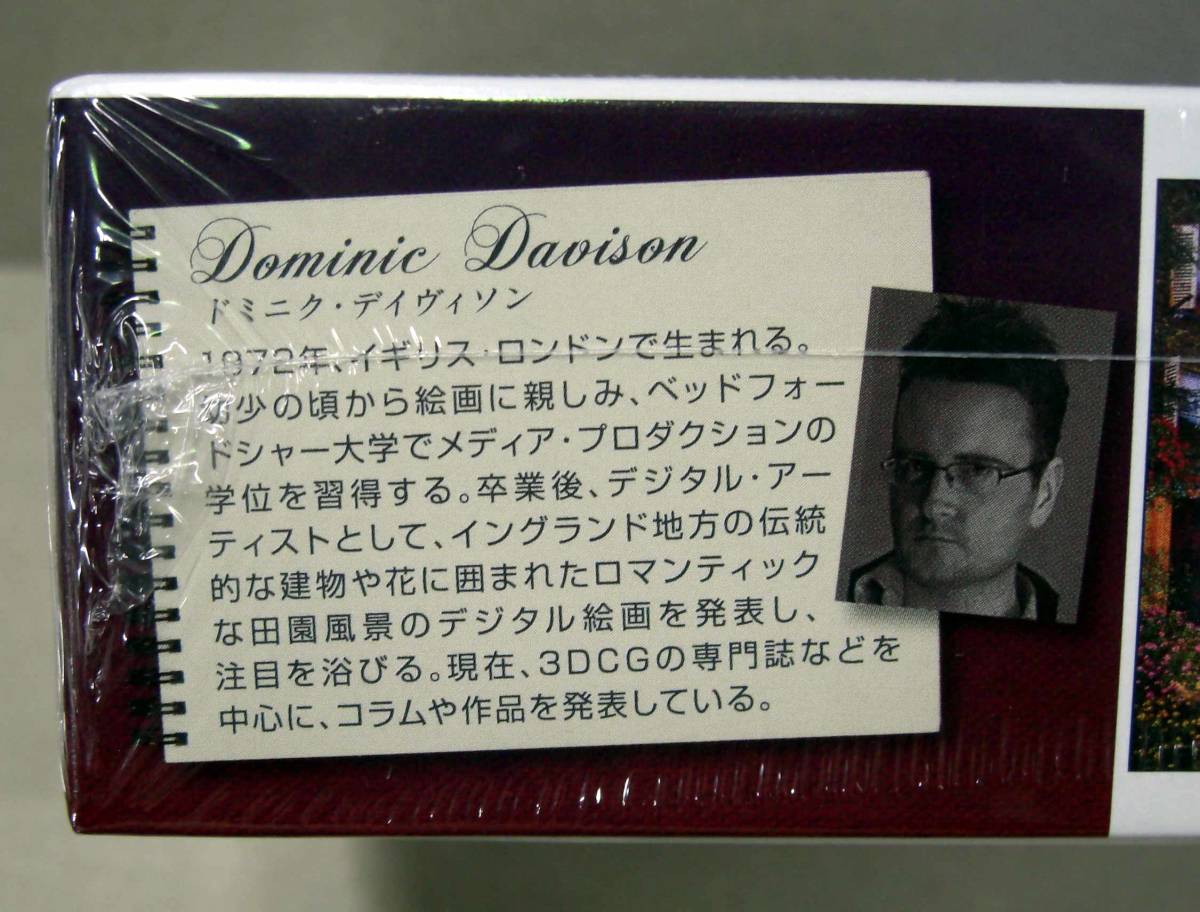 Dominic Davison
ドミニク・デイヴィソン
1972年、イギリス・ロンドンで生まれる。
幼少の頃から絵画に親しみ、ベッドフォー
ドシャー大学でメディア・プロダクションの
学位を習得する。卒業後、デジタル・アー
ティストとして、イングランド地方の伝統
的な建物や花に囲まれたロマンティック
な田園風景のデジタル絵画を発表し、
注目を浴びる。現在、3DCGの専門誌などを
中心に、コラムや作品を発表している。